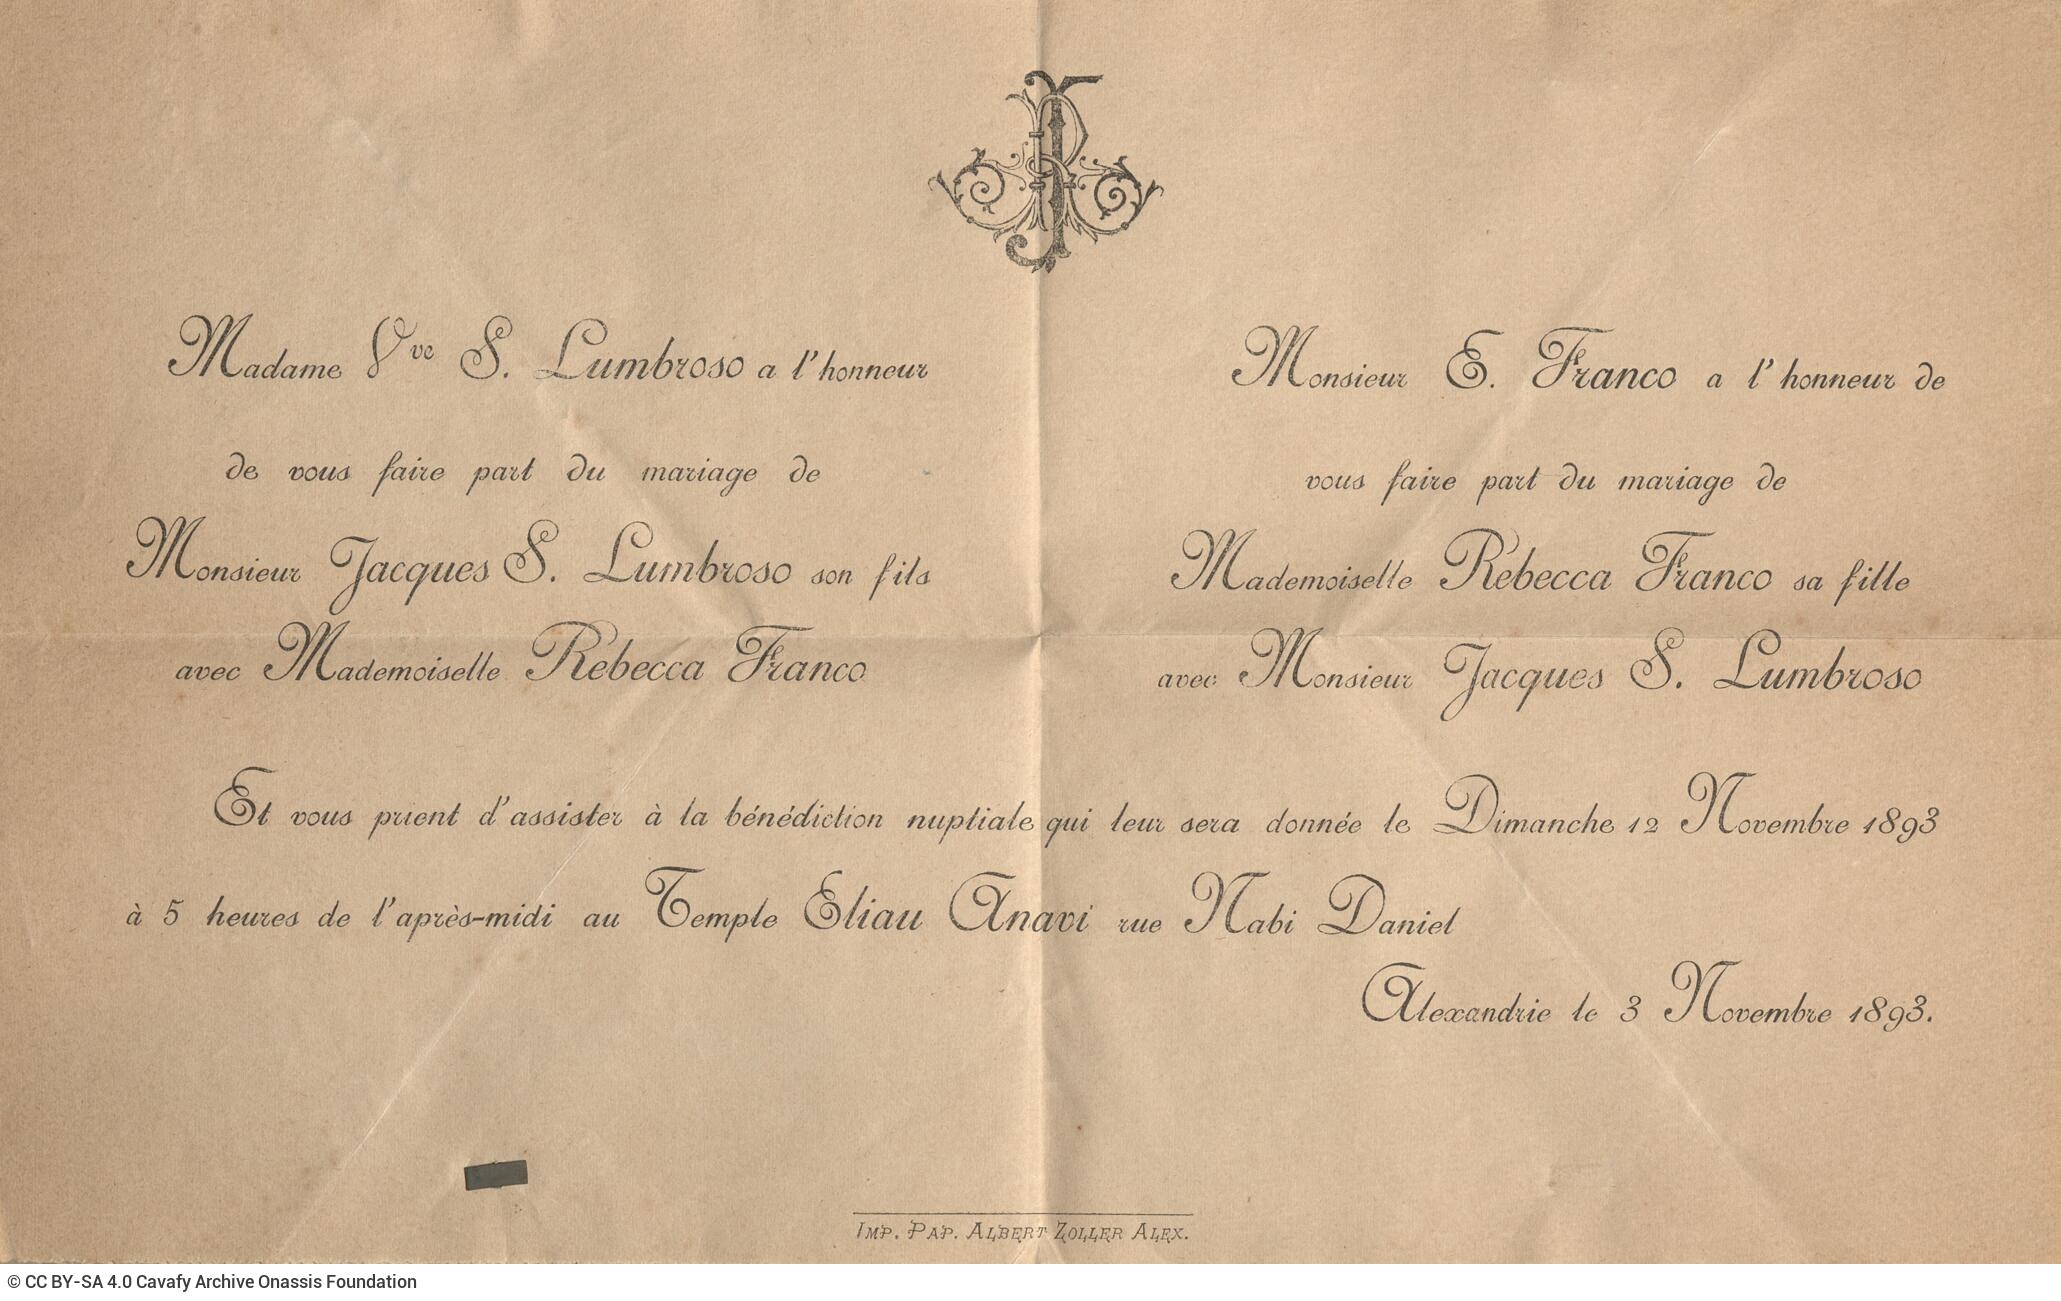 JR
Madame Vve S. Lumbroso a l'honneur
de vous faire part du mariage de
Monsieur Jacques S. Lumbroso son fils
avec Mademoiselle Rebecca Franco
Monsieur E. Franco a l'honneur de
vous faire part du mariage de
Mademoiselle Rebecca Franco sa fille
avec Monsieur Jacques S. Lumbroso
Et vous prient d'assister à la bénédiction nuptiale qui leur sera donnée le Dimanche 12 Novembre 1893
à 5 heures de l'après-midi au Temple Eliau Anavi rue Nabi Daniel
Alexandrie le 3 Novembre 1893.
IMP. PAP. ALBERT ZOLLER ALEX.
© CC BY-SA 4.0 Cavafy Archive Onassis Foundation